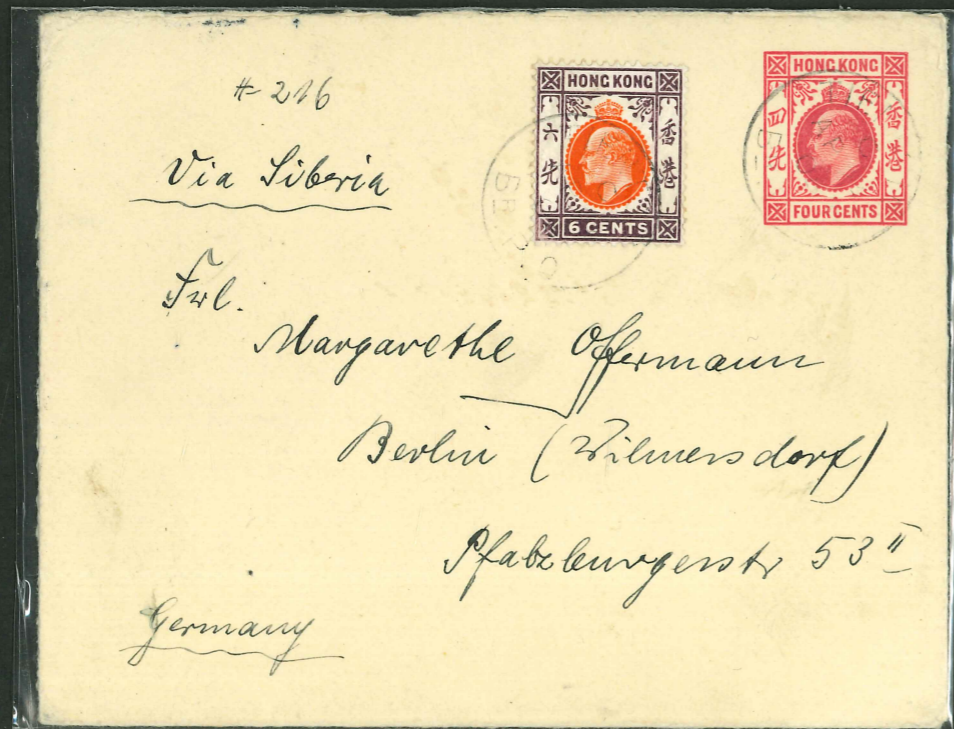 # 216
Via Siberia
HONG KONG
六先
香港
6 CENTS
HONG KONG
四先
香港
FOUR CENTS
Frl.
Margarethe Offermann
Berlin (Wilmersdorf)
Pfalzburgerstr 53 II
Germany